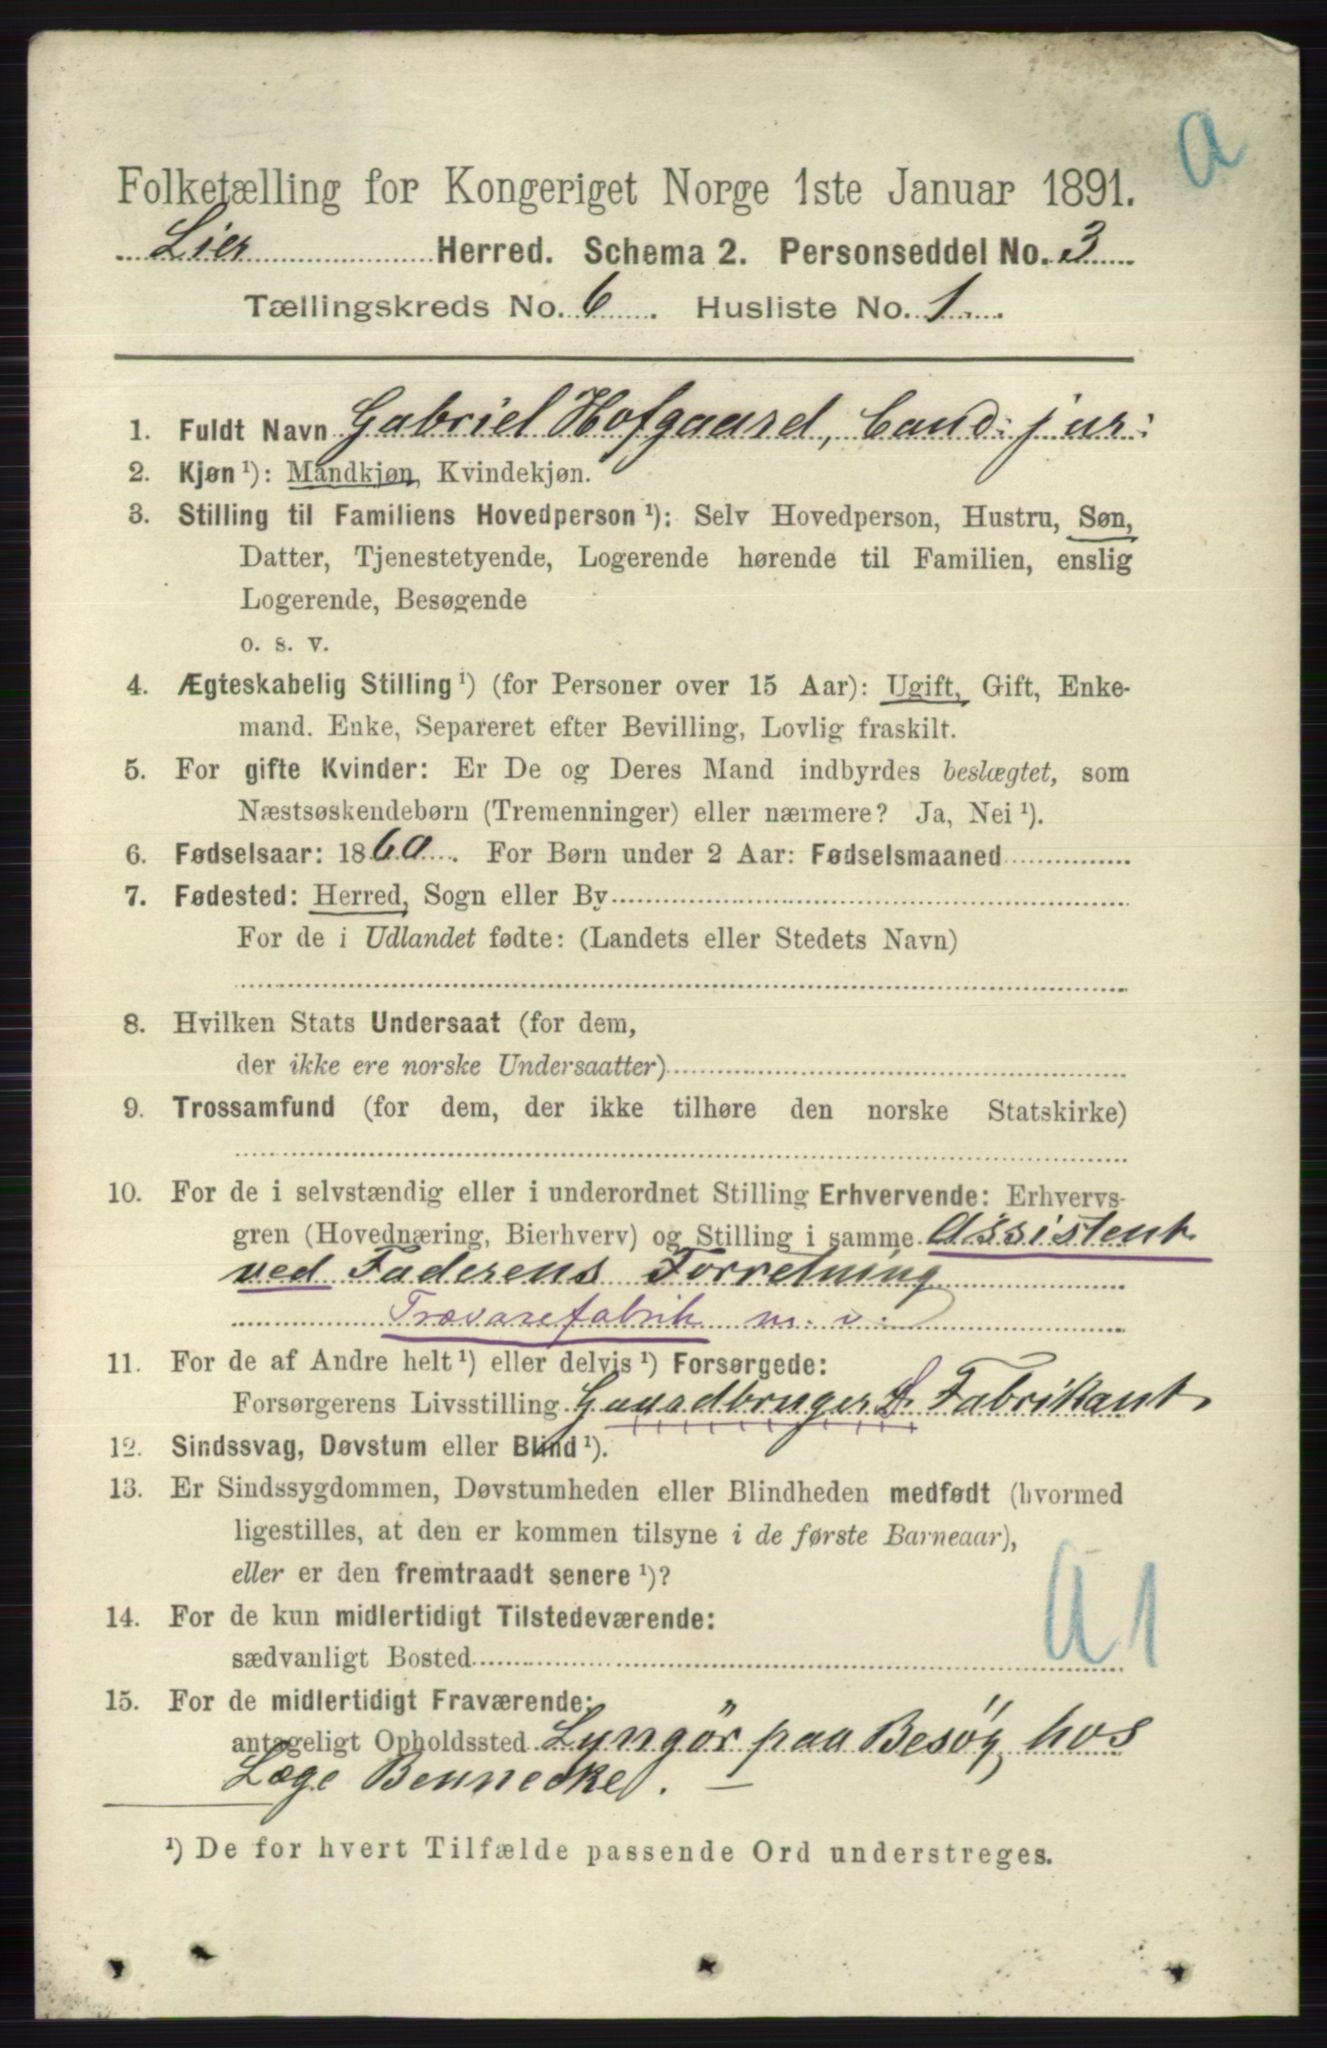 a
Folketælling for Kongeriget Norge 1ste Januar 1891.
Lier Herred. Schema 2. Personseddel No. 3
Tællingskreds No. 6. Husliste No. 1.
1. Fuldt Navn Gabriel Hofgaard, Cand: jur:
2. Kjøn ¹): Mandkjøn, Kvindekjøn.
3. Stilling til Familiens Hovedperson ¹): Selv Hovedperson, Hustru, Søn,
Datter, Tjenestetyende, Logerende hørende til Familien, enslig
Logerende, Besøgende
o. s. v.
4. Ægteskabelig Stilling ¹) (for Personer over 15 Aar): Ugift, Gift, Enke-
mand. Enke, Separeret efter Bevilling, Lovlig fraskilt.
5. For gifte Kvinder: Er De og Deres Mand indbyrdes beslægtet, som
Næstsøskendebørn (Tremenninger) eller nærmere? Ja, Nei ¹).
6. Fødselsaar: 1860. For Børn under 2 Aar: Fødselsmaaned
7. Fødested: Herred, Sogn eller By
For de i Udlandet fødte: (Landets eller Stedets Navn)
8. Hvilken Stats Undersaat (for dem,
der ikke ere norske Undersaatter)
9. Trossamfund (for dem, der ikke tilhøre den norske Statskirke)
10. For de i selvstændig eller i underordnet Stilling Erhvervende: Erhvervs-
gren (Hovednæring, Bierhverv) og Stilling i samme Assistent
ved Faderens Forretning
Trævarefabrik m. v.
11. For de af Andre helt ¹) eller delvis ¹) Forsørgede:
Forsørgerens Livsstilling Gaardbruger & Fabrikant.
12. Sindssvag, Døvstum eller Blind ¹).
13. Er Sindssygdommen, Døvstumheden eller Blindheden medfødt (hvormed
ligestilles, at den er kommen tilsyne i de første Barneaar),
eller er den fremtraadt senere ¹)?
14. For de kun midlertidigt Tilstedeværende:
sædvanligt Bosted
a1
15. For de midlertidigt Fraværende:
antageligt Opholdssted Lyngör paa Besøg hos
Læge Bennecke.
¹) De for hvert Tilfælde passende Ord understreges.